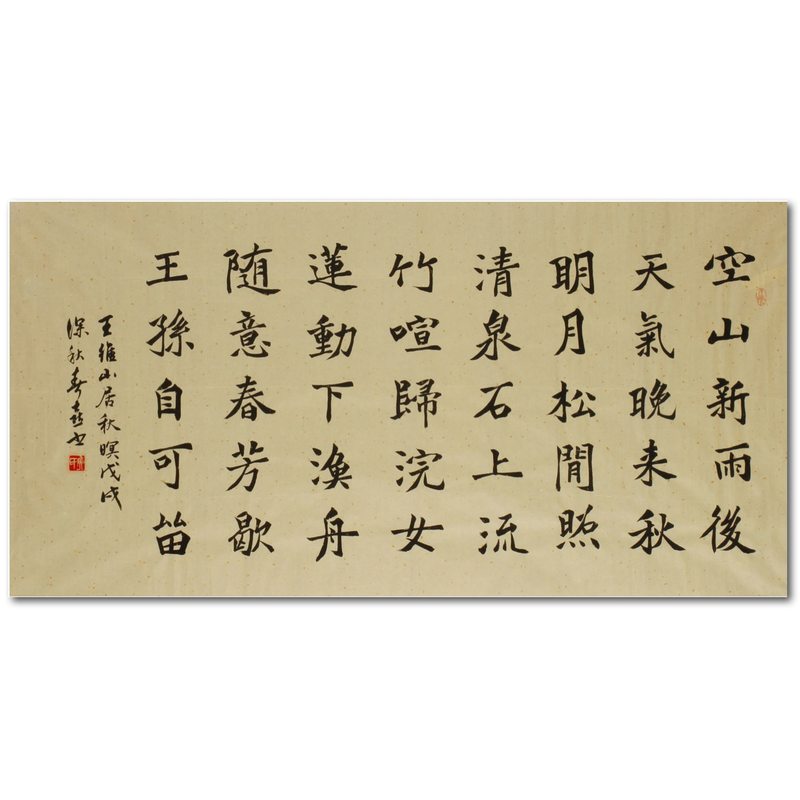 空山新雨後
天氣晚来秋
明月松閒照
清泉石上流
竹喧歸浣女
蓮動下漁舟
随意春芳歇
王孫自可留
王維山居秋暝戊戌
深秋书